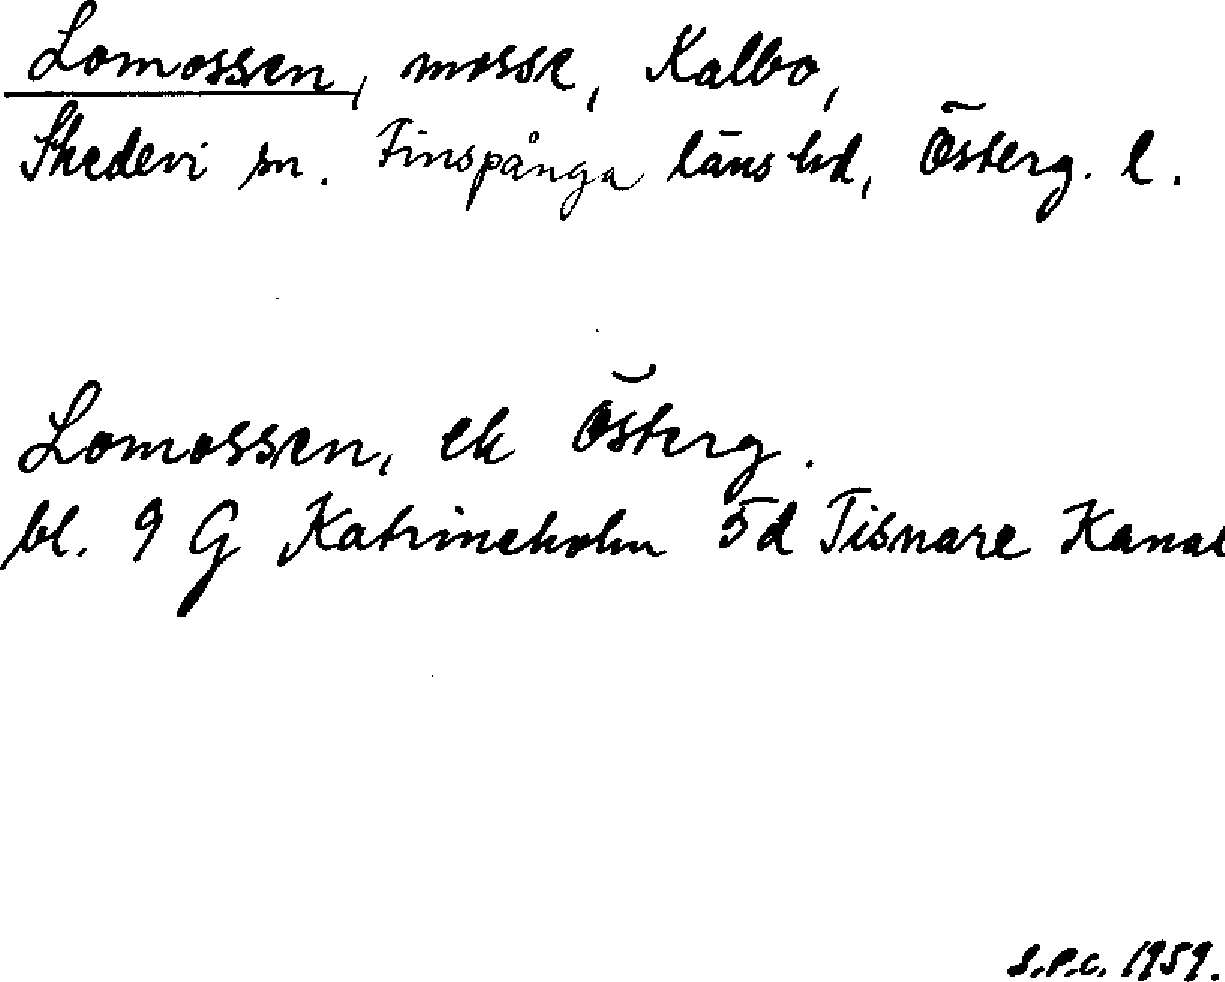 Lomossen, mosse, Kalbo,
Skedevi sn. Finspånga läns hd, Österg. l.
Lomossen, ek Österg.
bl. 9 G Katrineholm 5d Tisnare Kanal
S.P.C. 1959.